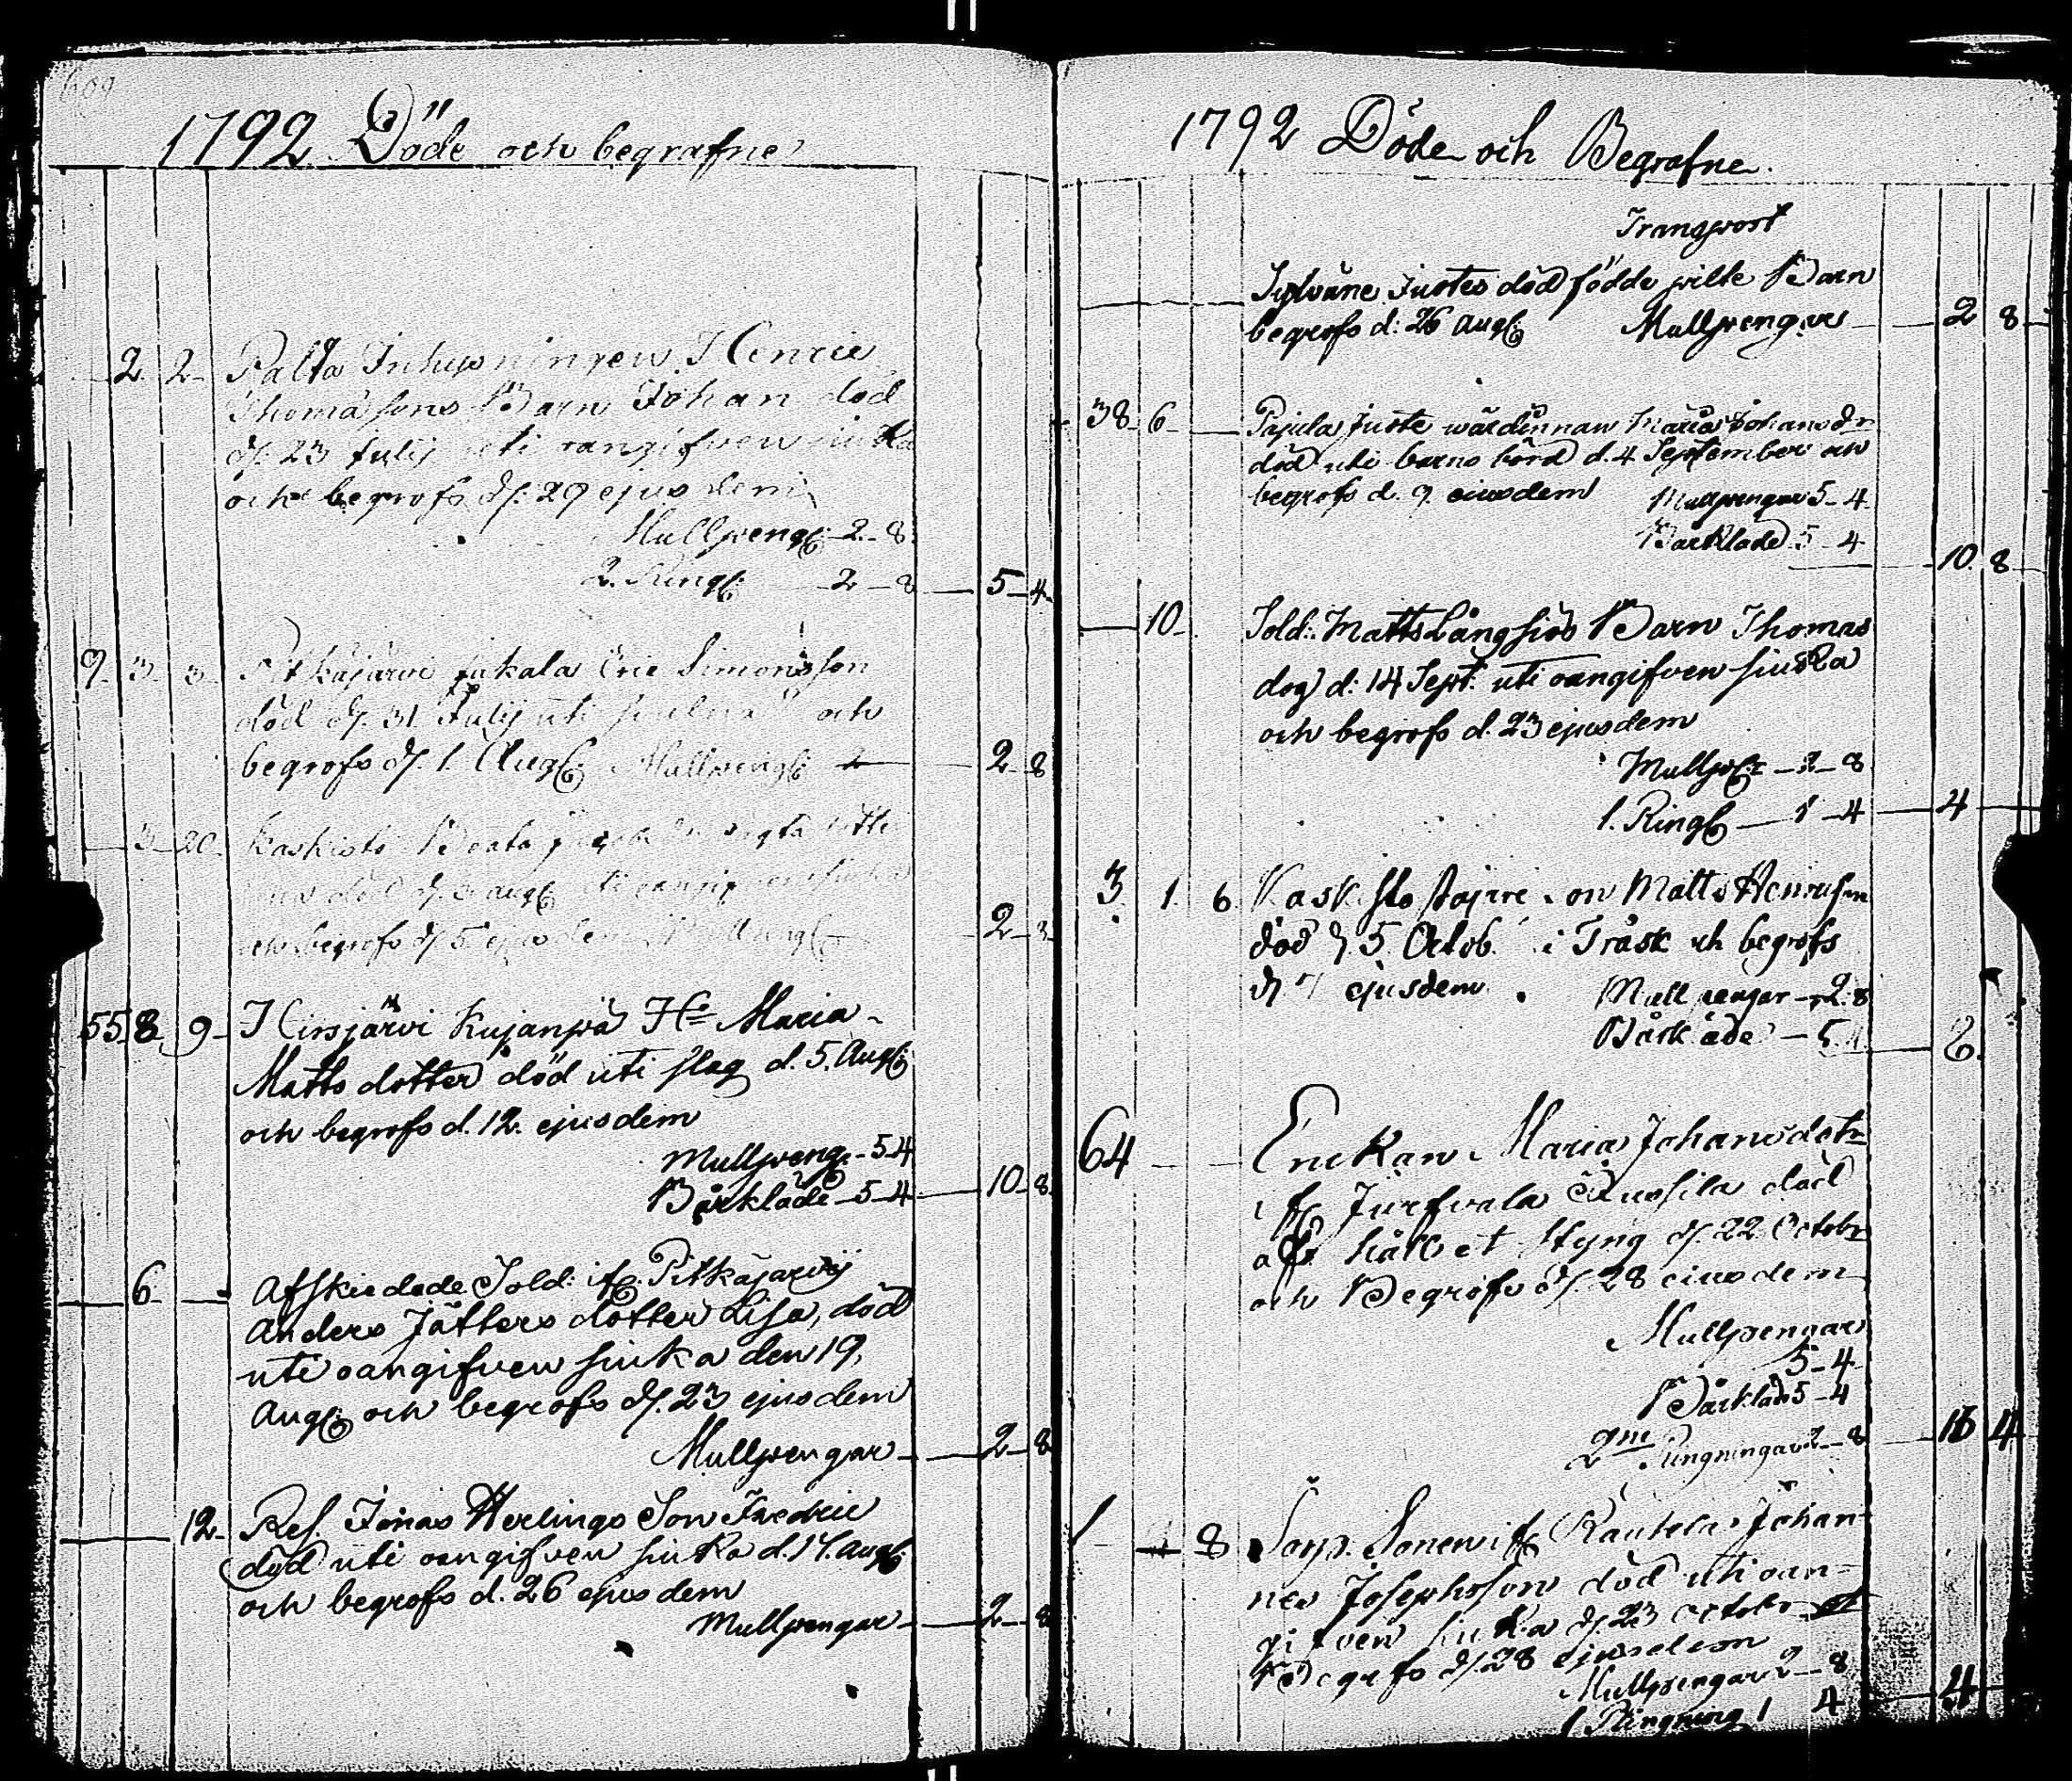 609
1792 Döde och begrafne
2 2 Palta Inhysningen Henric
Thomasons Barn Johan död
d. 23 Julij uti oangifven siuka
och begrofs d. 29 ejusdem
Mullpeng: 2-8
2. Ring: 2-8 5-4
9 3 3 Pitkäjärvi Jakala Eric Simonsson
död d. 31 Julij uti och
begrofs d. 1 Aug: Mullpeng: 2-8
3 20 Kaskisto Beata
död d. 3 aug: uti oangifven siuka
och begrofs d. 5 ejusdem 2
55 8 9 Hirsjärvi Kujanpä H: Maria
Matts dotter död uti slag d. 5. Aug:
och begrofs d. 12. ejusdem
Mullpeng: 5-4
Bårkläde 5-4 10-8
6 Afskiedade Sold: if: Pitkäjärvij
Anders Jätters dotter Lisa, död
uti oangifven siuka den 19.
Aug: och begrofs d. 23 ejusdem
Mullpengar 2-8
12 Ref. Jonas Herlings Son Fredric
död uti oangifven siuka d. 17. Aug:
och begrofs d. 26 ejusdem
Mullpengar 2-8
1792 Döde och Begrafne.
Transport
Sylväne Justes död födde pilte Barn
begrofs d: 26 Aug: Mullpengar 2 8
38 6 Pajula Juste wärdinnan Maria Johans dr
död uti barns börd d. 4 September och
begrofs d. 9 eiusdem Mullpengar 5-4
Bårkläde 5-4
10 8
10 Sold: Matts Långsiös Barn Thomas
dog d: 14 Sept: uti oangifven siuka
och begrofs d. 23 ejusdem
Mullp: 2-8
1. Ring: 1-4 4
3 1 6 Kaskisto Matts Henricson
död d 5 Octob. i Träsk och begrofs
d 7 ejusdem. Mull pengar 2.8
Bårkläde 5.4
8
64 Enckan Maria Johans dotr
if: Jurfvala Äussila död
af håll et styng d. 22 Octobr
och Begrofs d. 28 eiusdem
Mullpengar
5-4
Bårkläd 5-4
2ne Ringningar 2-8 4
1 8 Sonen if: Rautela Johan-
nes Josephsson död uti oan-
gifven siuka d. 23 Octobr
Begrofs d. 28 ejusdem
Mullpengar 2-8
1 Ringning 1 4 4